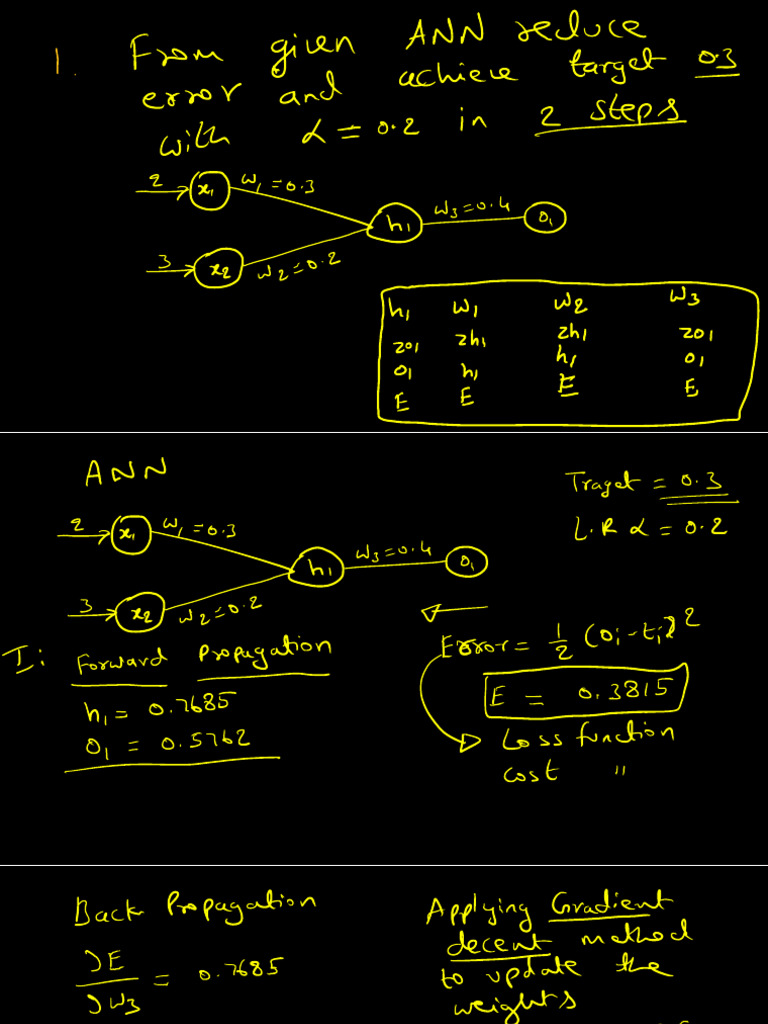 1. From given ANN reduce
error and achieve target 0.3
with α = 0.2 in 2 steps
2 x1 w1 = 0.3
h1 w3 = 0.4 o1
3 x2 w2 = 0.2
h1 w1 w2 w3
zo1 zh1 zh1 zo1
o1 h1 h1 o1
E E E E
ANN
Traget = 0.3
L.R α = 0.2
2 x1 w1 = 0.3
h1 w3 = 0.4 o1
3 x2 w2 = 0.2
I: Forward Propagation
h1 = 0.7685
o1 = 0.5762
Error = 1/2 (oi - ti)2
E = 0.3815
Loss function
cost "
Back Propagation
∂E/∂w3 = 0.7685
Applying Gradient
decent method
to update the
weights